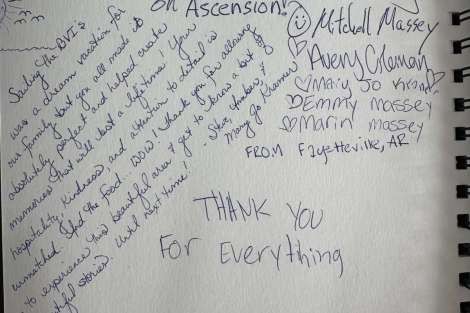 on Ascension!
Sailing the BVI's
was a dream vacation for
our family but you all made it
absolutely perfect and helped create
memories that will last a lifetime! Your
hospitality, kindness, and attention to detail is
unmatched. And the food... wow! Thank you for allowing
to experience this beautiful area & get to know a bit of
stories. Until next time!
- Steve, Amber, &
Mary Jo
Mitchell Massey
Avery Coleman
Mary Jo
Emmy Massey
Marin Massey
From Fayetteville, AR
THANK YOU
For Everything